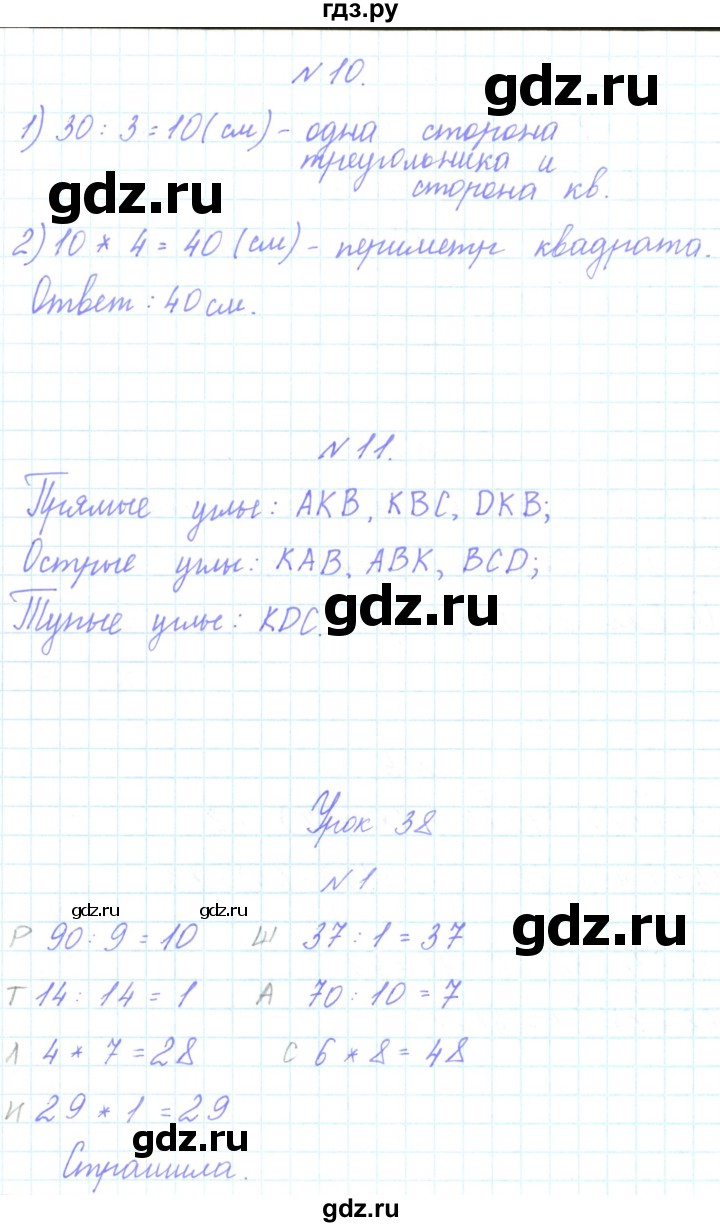 гдз.ру
N 10.
gdz.ru
1) 30 : 3 = 10 (см) - одна сторона
треугольника и
сторона кв.
gdz.ru
2) 10 * 4 = 40 (см) - периметр квадрата.
Ответ : 40 см.
N 11.
Прямые углы: AKB, KBC, DKB;
Острые углы: KAB, ABK, BCD;
Тупые углы: KDC.
gdz.ru
Урок 38
N 1
gdz.ru gdz.ru gdz.ru
Р 90 : 9 = 10 Ш 37 : 1 = 37
Т 14 : 14 = 1 А 70 : 10 = 7
Л 4 * 7 = 28 С 6 * 8 = 48
И 29 * 1 = 29
gdz.ru
Страшила.
gdz.ru